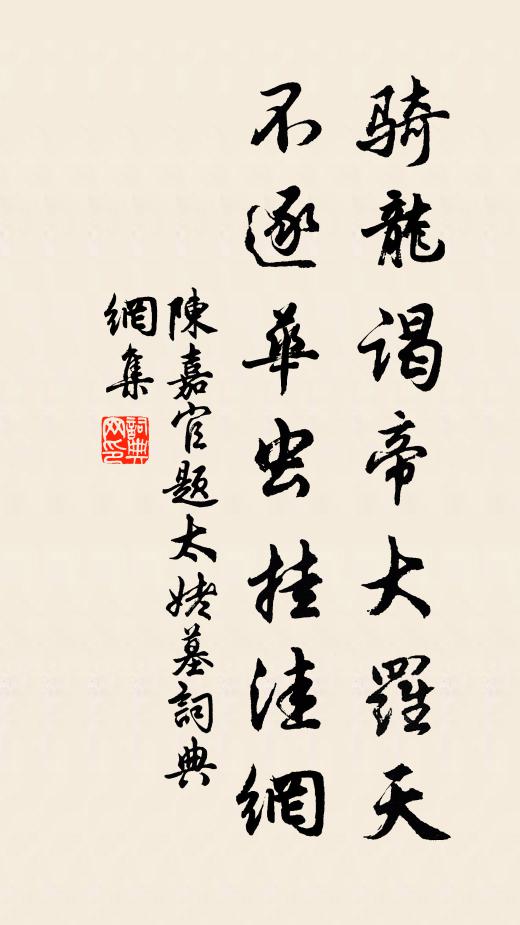 騎龍謁帝大羅天
不逐華虫挂洼網
陳嘉官題太姥墓詞典
網集
詞典
网印